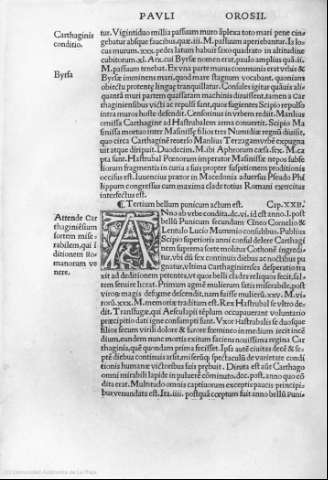 PAVLI OROSII.
Carthaginis
conditio.
Byrsa
Attende Car
thaginiensium
fortem mise-
rabilem, qui i
ditionem Ro-
manorum ve
nere.
tur. Viginti duo millia passuum muro simplexa toto mari pene cin
gebatur absque faucibus, quæ .iii. M. passuum aperiebantur. Is lo
cus murum .xxx. pedes latum habuit saxo quadrato in altitudine
cubitorum .xl. Arx, cui Byrsæ nomen erat, paulo amplius quā .ii.
M. passuum tenebat. Ex vna parte murus communis erat vrbis &
Byrsæ imminens mari, quod mare stagnum vocabant, quoniam
obiectu protentæ linguæ tranquillatur. Consules igitur quāuis ali-
quantā muri partem quassatam machinis diruissent, tamen a Car
thaginensibus victi ac repulsi sunt, quos fugientes Scipio repulso
intra muros hoste defendit. Censorinus in vrbem redit. Manlius
omissa Carthagine ad Hastrubalem arma conuertit. Scipio Ma
sinissa mortuo inter Masinissæ filios tres Numidiæ regnū diuisit,
quo circa Carthaginē reuerso Manlius Tezagam vrbē expugna
uit atque diripuit. Duodecim .M. ibi Aphrorum cæsa, sex .M. ca
pta sunt. Hastrubal Pœnorum imperator Masinissæ nepos subse
liorum fragmentis in curia a suis propter suspitionem proditionis
occisus est. Iuuencius prætor in Macedonia aduersus Pseudo Phi
lippum congressus cum maxima clade totius Romani exercitus
interfectus est.
¶ Tertium bellum punicum actum est. Cap. XXII.
ANno ab vrbe condita .dc.vi. id est anno .l. post
bellū Punicum secundum Cneo Cornelio &
Lentulo Lucio Mummio consulibus. Publius
Scipio superioris anni consul delere Carthagi
nem suprema sorte molitur Cothonē ingredi-
tur, vbi dū sex continuis diebus ac noctibus pu
gnatur, vltima Carthaginienses desperatio tra
xit ad deditionem petentes, vt quos belli clades reliquos fecit, sal
tem seruire liceat. Primum agmē mulierum satis miserabile, post
viros magis deforme descendit, nam fuisse mulierū .xxv. M. viro
rū .xxx. M. memoriæ traditum est. Rex Hastrubal se vltro de-
dit. Transfugæ, qui Aesculapii tēplum occupauerant voluntario
præcipitio dati igne consumpti sunt. Vxor Hastrubalis se duosque
filios secum virili dolore & furore fœmineo in medium iecit incē
dium, eundem nunc mortis exitum faciens nouissima regina Car
thaginis, quē quondam prima fecisset. Ipsa autē ciuitas decē & se-
ptē diebus continuis arsit, miserūque spectaculū de varietate condi
tionis humanæ victoribus suis præbuit. Diruta est aūt Carthago
omni murali lapide in puluerē cōminuto .dcc. post, anno quo cō
dita erat. Multitudo omnis captiuorum exceptis paucis principi-
bus venundata est. Ita .iiii. postquā cœptum fuit anno bellū Puni-